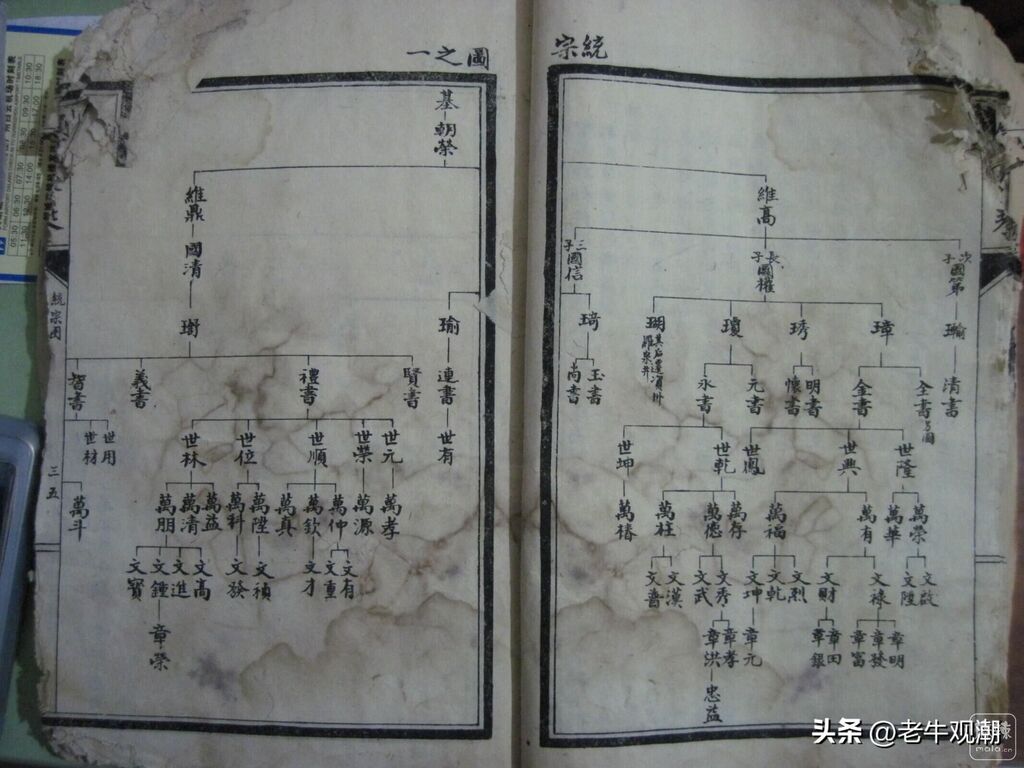 統宗
圖之一
維高
次子國第
長子國權
三子國信
瑜
璋
琇
瓊
瑚
琦
清書
全書
全書
明書
懷書
元書
永書
玉書
尚書
世隆
世興
世鳳
世乾
世坤
萬榮
萬華
萬有
萬福
萬存
萬德
萬柱
萬椿
文啟
文陞
文祿
文財
文烈
文乾
文坤
文秀
文武
文漢
文晋
章明
章發
章富
章田
章銀
章元
章孝
章洪
忠益
基
朝榮
維鼎
國清
瑜
連書
世有
賢書
禮書
義書
智書
世元
世榮
世順
世位
世林
世用
世材
萬孝
萬源
萬仲
萬欽
萬真
萬陞
萬科
萬益
萬清
萬朋
萬斗
文有
文重
文才
文禎
文發
文高
文進
文鍾
文寶
章榮
統宗圖
三五
头条 @老牛观潮
mala.cn